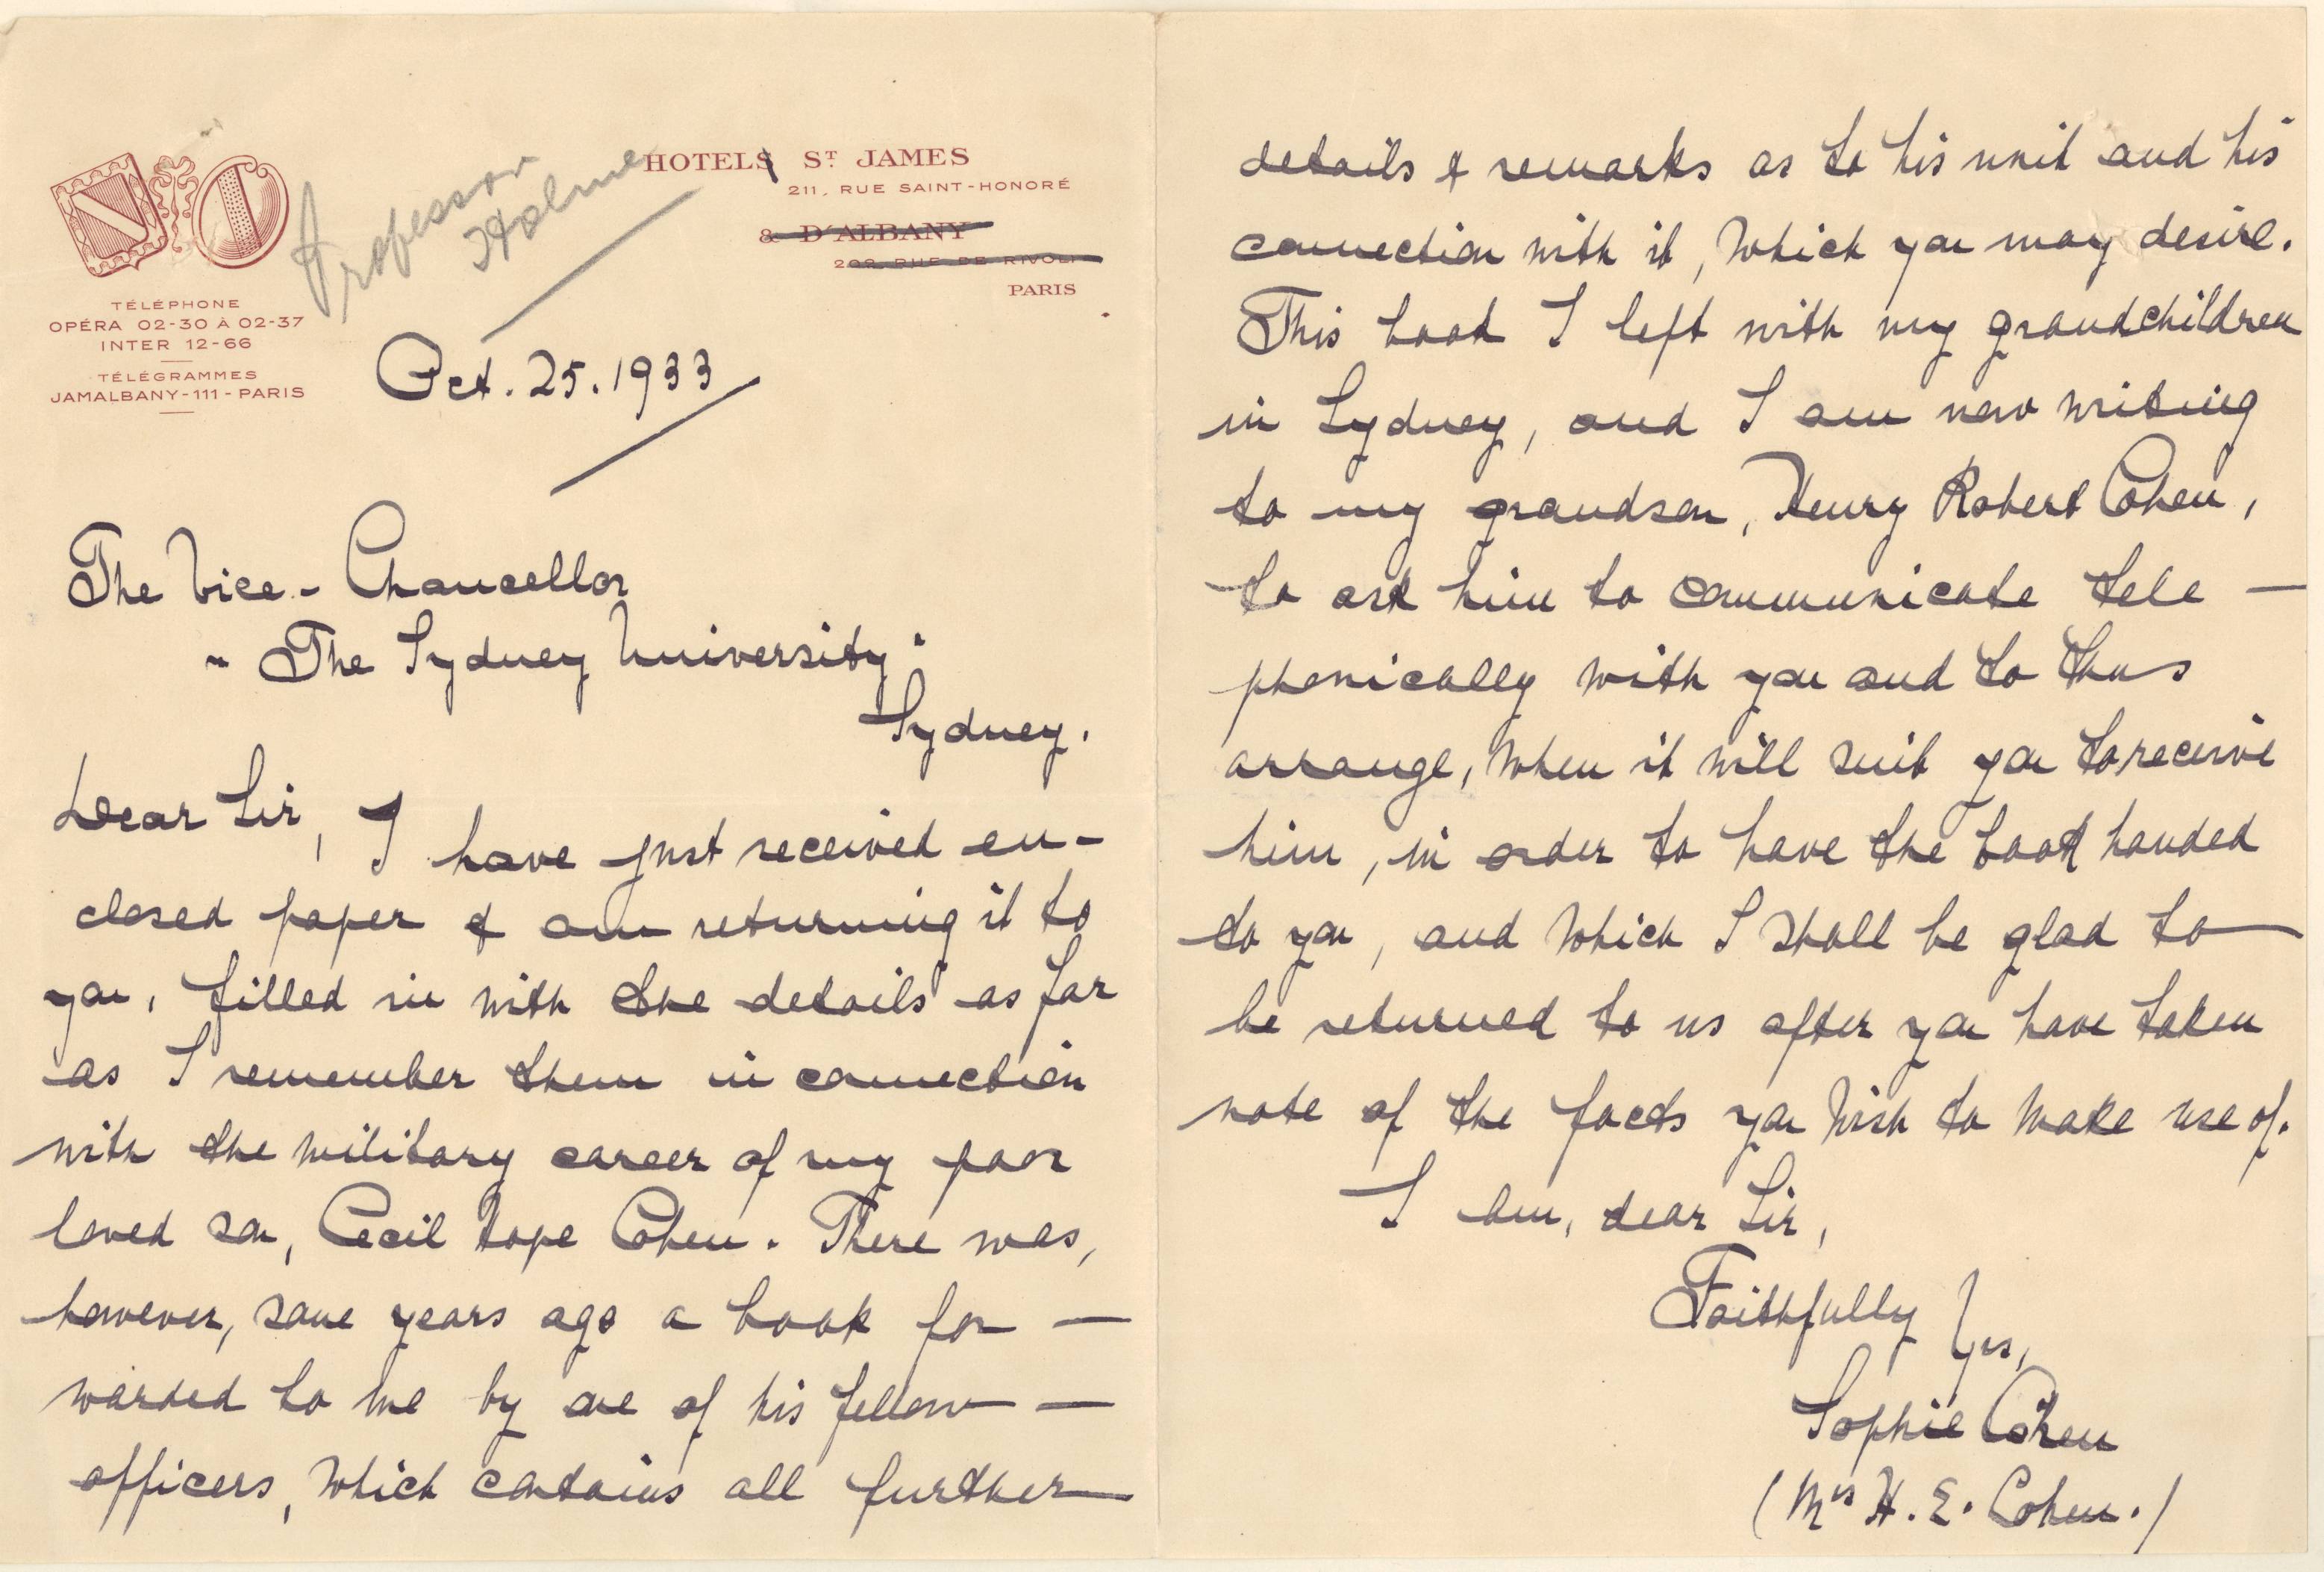 HOTELS ST JAMES
211, RUE SAINT-HONORÉ
& D'ALBANY
202 RUE DE RIVOLI
PARIS
TÉLÉPHONE
OPÉRA 02-30 À 02-37
INTER 12-66
TÉLÉGRAMMES
JAMALBANY-111-PARIS
Professor
Holme
Oct. 25. 1933
The Vice-Chancellor
"The Sydney University"
Sydney.
Dear Sir, I have just received en-
closed paper & am returning it to
you, filled in with the details as far
as I remember them in connection
with the military career of my poor
loved son, Cecil Hope Cohen. There was,
however, some years ago a book for-
warded to me by one of his fellow-
officers, which contains all further
details & remarks as to his unit and his
connection with it, which you may desire.
This book I left with my grandchildren
in Sydney, and I am now writing
to my grandson, Henry Robert Cohen,
to ask him to communicate tele-
phonically with you and to thus
arrange, when it will suit you to receive
him, in order to have the book handed
to you, and which I shall be glad to
be returned to us after you have taken
note of the facts you wish to make use of.
I am, dear Sir,
Faithfully Yrs,
Sophie Cohen
(Mrs H. E. Cohen.)